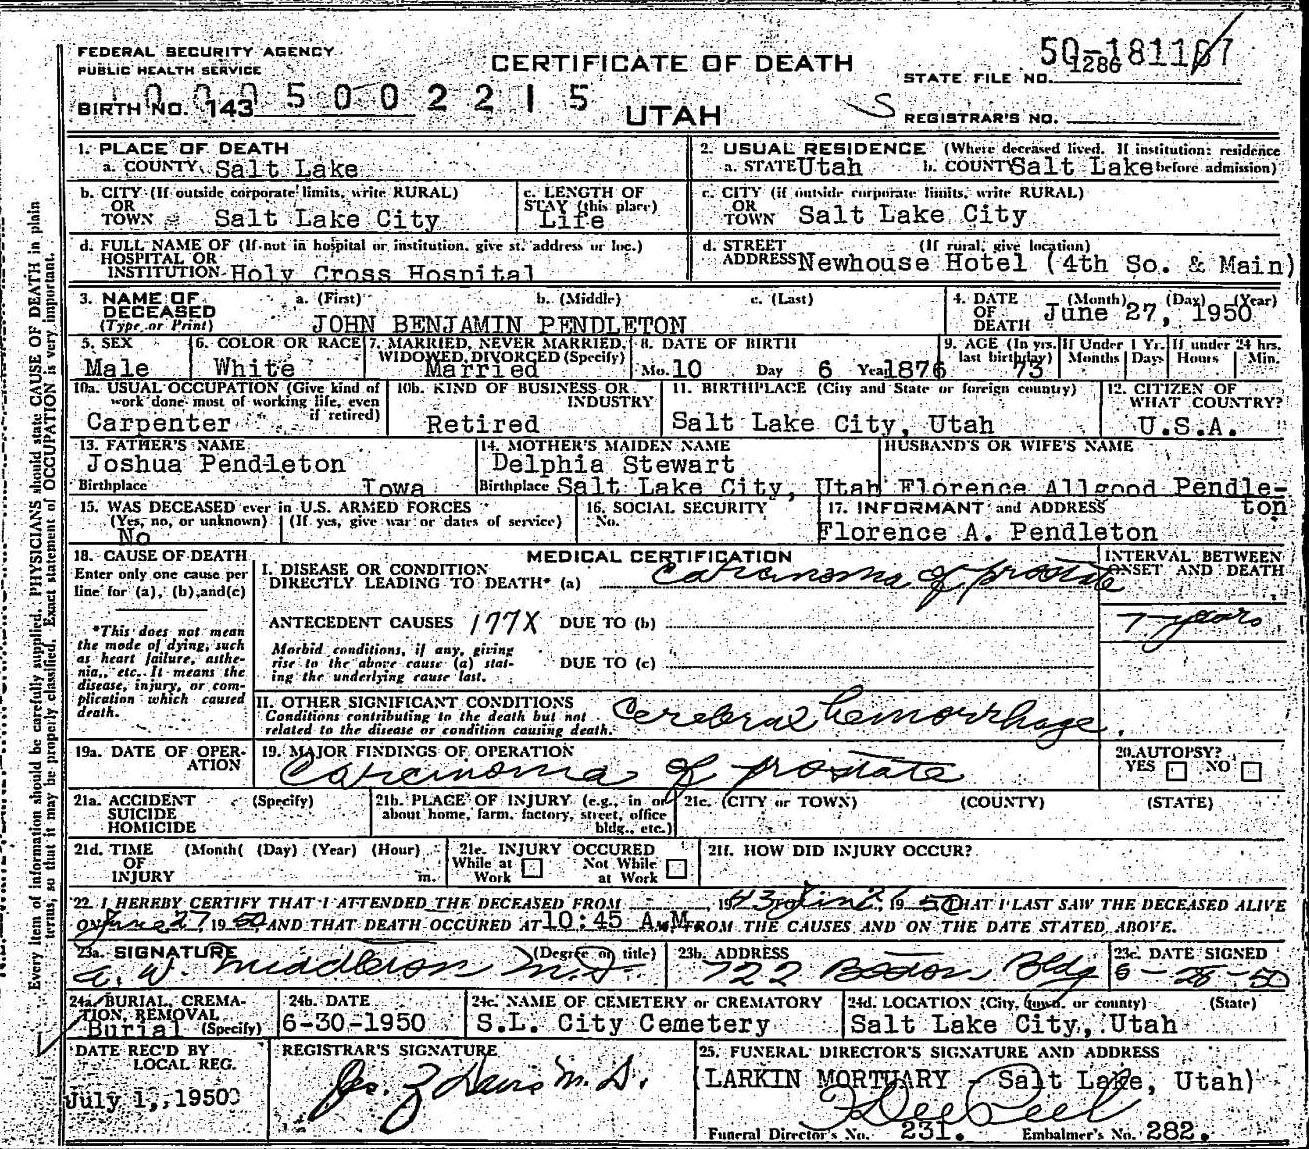 FEDERAL SECURITY AGENCY
PUBLIC HEALTH SERVICE
CERTIFICATE OF DEATH
50-181107
STATE FILE NO. 1286
BIRTH NO. 143
000 5 0 0 2 2 1 5
UTAH
S
REGISTRAR'S NO.
1. PLACE OF DEATH
a. COUNTY Salt Lake
2. USUAL RESIDENCE (Where deceased lived. If institution: residence before admission)
a. STATE Utah b. COUNTY Salt Lake
b. CITY (If outside corporate limits, write RURAL)
OR
TOWN Salt Lake City
c. LENGTH OF
STAY (this place)
Life
c. CITY (if outside corporate limits, write RURAL)
OR
TOWN Salt Lake City
d. FULL NAME OF (If not in hospital or institution, give st. address or loc.)
HOSPITAL OR
INSTITUTION Holy Cross Hospital
d. STREET (If rural, give location)
ADDRESS Newhouse Hotel (4th So. & Main)
3. NAME OF DECEASED
(Type or Print)
a. (First) b. (Middle) c. (Last)
JOHN BENJAMIN PENDLETON
4. DATE OF DEATH (Month) (Day) (Year)
June 27, 1950
5. SEX
Male
6. COLOR OR RACE
White
7. MARRIED, NEVER MARRIED,
WIDOWED, DIVORCED (Specify)
Married
8. DATE OF BIRTH
Mo. 10 Day 6 Year 1876
9. AGE (In yrs. last birthday)
73
If Under 1 Yr.
Months Days
If under 24 hrs.
Hours Min.
10a. USUAL OCCUPATION (Give kind of
work done most of working life, even
if retired)
Carpenter
10b. KIND OF BUSINESS OR
INDUSTRY
Retired
11. BIRTHPLACE (City and State or foreign country)
Salt Lake City, Utah
12. CITIZEN OF
WHAT COUNTRY?
U.S.A.
13. FATHER'S NAME
Joshua Pendleton
Birthplace Iowa
14. MOTHER'S MAIDEN NAME
Delphia Stewart
Birthplace Salt Lake City, Utah
HUSBAND'S OR WIFE'S NAME
Florence Allgood Pendle-
ton
15. WAS DECEASED ever in U.S. ARMED FORCES
(Yes, no, or unknown) (If yes, give war or dates of service)
No
16. SOCIAL SECURITY
No.
17. INFORMANT and ADDRESS
Florence A. Pendleton
18. CAUSE OF DEATH
Enter only one cause per
line for (a), (b), and (c)
*This does not mean
the mode of dying, such
as heart failure, asthe-
nia, etc. It means the
disease, injury, or com-
plication which caused
death.
MEDICAL CERTIFICATION
I. DISEASE OR CONDITION
DIRECTLY LEADING TO DEATH* (a) Carcinoma of prostate
ANTECEDENT CAUSES 177X DUE TO (b)
Morbid conditions, if any, giving
rise to the above cause (a) stat-
ing the underlying cause last.
DUE TO (c)
INTERVAL BETWEEN
ONSET AND DEATH
7 years
II. OTHER SIGNIFICANT CONDITIONS
Conditions contributing to the death but not
related to the disease or condition causing death.
Cerebral hemorrhage.
19a. DATE OF OPER-
ATION
19. MAJOR FINDINGS OF OPERATION
Carcinoma of prostate
20. AUTOPSY?
YES NO
21a. ACCIDENT
SUICIDE
HOMICIDE
(Specify)
21b. PLACE OF INJURY (e.g., in or
about home, farm, factory, street, office
bldg., etc.)
21c. (CITY or TOWN) (COUNTY) (STATE)
21d. TIME OF INJURY (Month( (Day) (Year) (Hour)
m.
21e. INJURY OCCURED
While at Work Not While at Work
21f. HOW DID INJURY OCCUR?
22. I HEREBY CERTIFY THAT I ATTENDED THE DECEASED FROM 1943 TO June 1950 THAT I LAST SAW THE DECEASED ALIVE
ON June 27 1950 AND THAT DEATH OCCURED AT 10:45 A.M. FROM THE CAUSES AND ON THE DATE STATED ABOVE.
23a. SIGNATURE (Degree or title)
A. W. Middleton M.D.
23b. ADDRESS
722 Boston Bldg
23c. DATE SIGNED
6-28-50
24a. BURIAL, CREMA-
TION, REMOVAL
(Specify)
Burial
24b. DATE
6-30-1950
24c. NAME OF CEMETERY or CREMATORY
S.L. City Cemetery
24d. LOCATION (City, town, or county) (State)
Salt Lake City, Utah
DATE REC'D BY
LOCAL REG.
July 1, 1950
REGISTRAR'S SIGNATURE
M.D.
25. FUNERAL DIRECTOR'S SIGNATURE AND ADDRESS
LARKIN MORTUARY - Salt Lake, Utah)
Funeral Director's No. 231. Embalmer's No. 282.
Every item of information should be carefully supplied. PHYSICIANS should state CAUSE OF DEATH in plain
terms, so that it may be properly classified. Exact statement of OCCUPATION is very important.